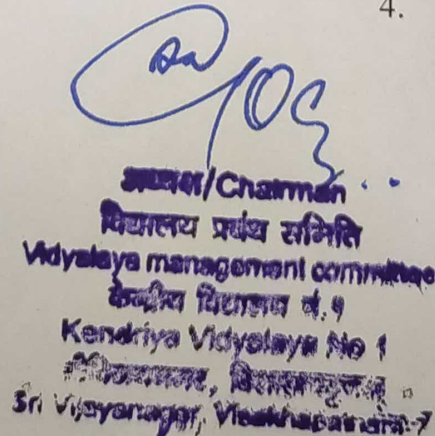 4.
अध्यक्ष/Chairman
विद्यालय प्रबंध समिति
Vidyalaya management committee
केन्द्रीय विद्यालय नं.१
Kendriya Vidyalaya No 1
Sri Vijayanagar, Visakhapatnam-7